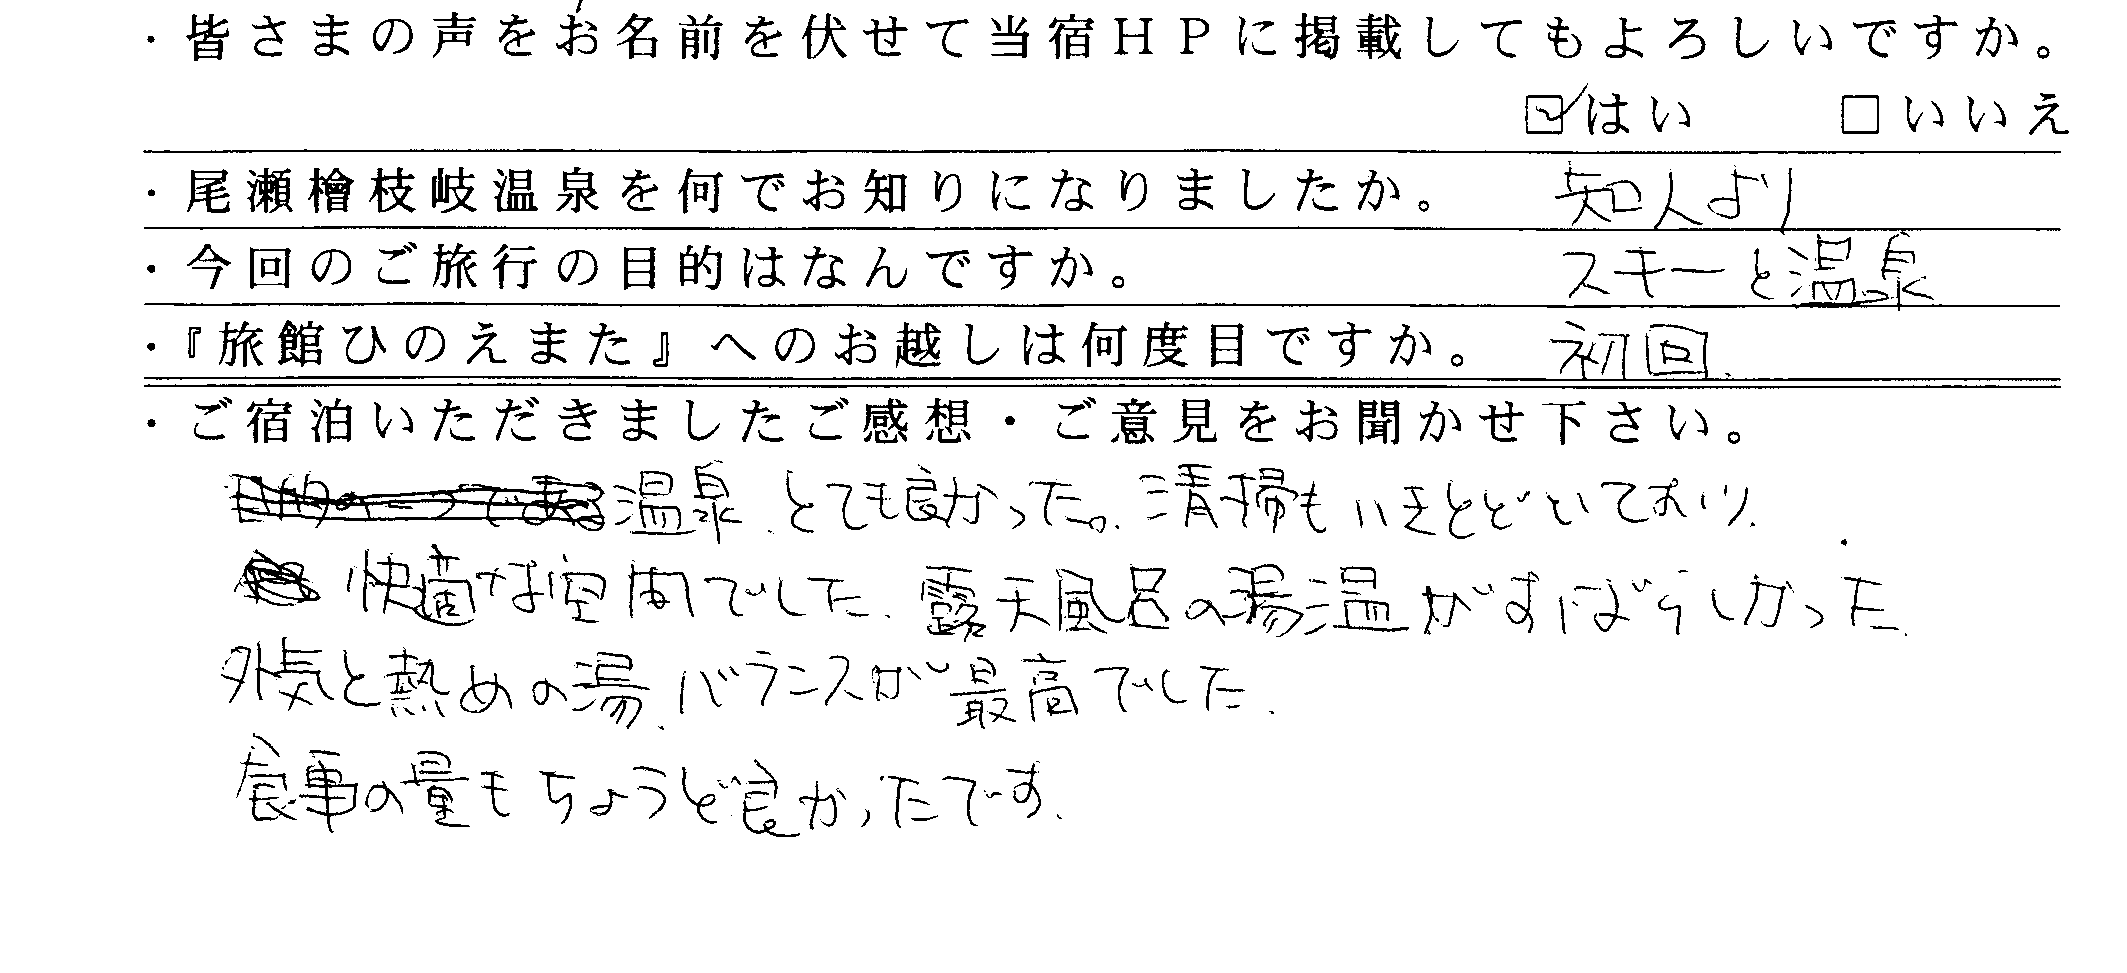 ・皆さまの声をお名前を伏せて当宿HPに掲載してもよろしいですか。
☑はい □いいえ
・尾瀬檜枝岐温泉を何でお知りになりましたか。 知人より
・今回のご旅行の目的はなんですか。 スキーと温泉
・『旅館ひのえまた』へのお越しは何度目ですか。 初回.
・ご宿泊いただきましたご感想・ご意見をお聞かせ下さい。
温泉、とても良かった。清掃もいきとどいており、
快適な空間でした。露天風呂の湯温がすばらしかった.
外気と熱めの湯、バランスが最高でした.
食事の量もちょうど良かったです.